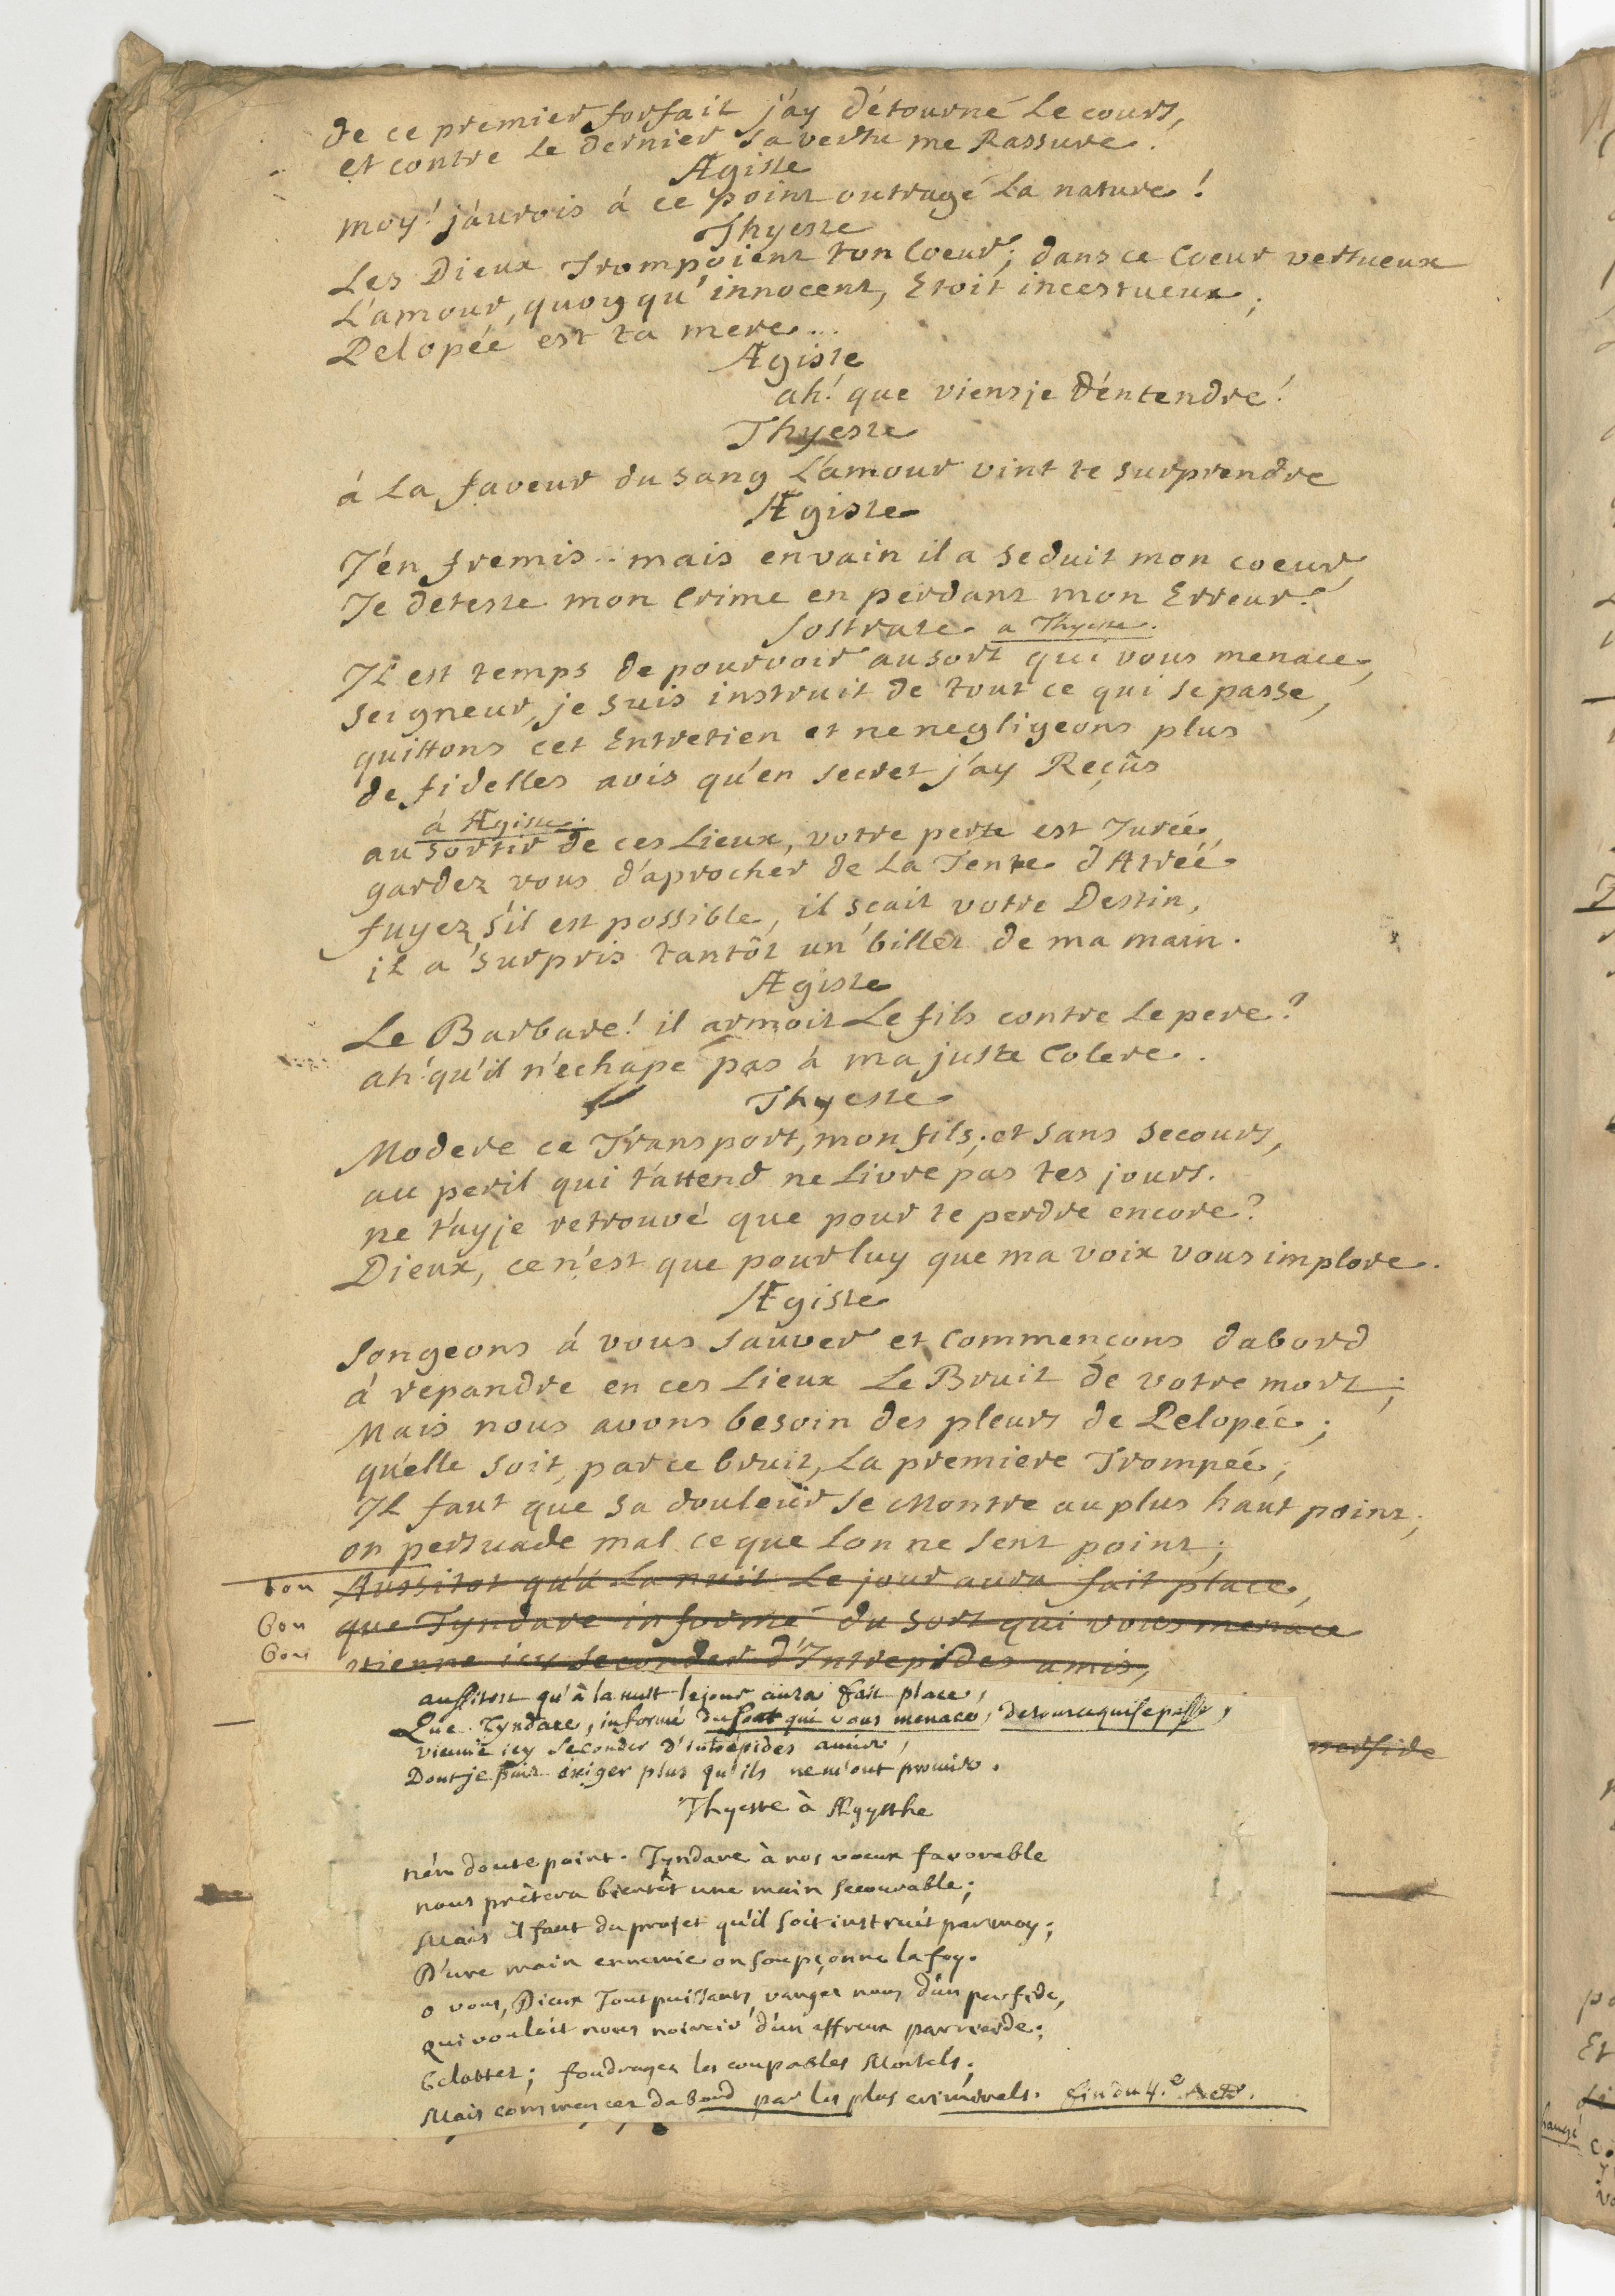 de ce premier forfait j'ay détourné Le cours,
et contre Le dernier sa vertu me Rassure.
Ægiste
moy! j'aurois á ce point outragé La nature!
Thyeste
Les Dieux Trompoient ton Coeur; dans ce Coeur vertueux
L'amour, quoy qu'innocent, Etoit incestueux;
Pelopéé est ta mere...
Ægiste
ah! que viens je d'éntendre!
Thyeste
á La faveur du sang L'amour vint te surprendre
Ægiste
J'én fremis.. mais envain il a seduit mon coeur,
Je deteste mon Crime en perdant mon Erreur.
Sostrate. a Thyeste.
Il est temps de pourvoir au sort qui vous menace,
Seigneur, je suis instruit de tout ce qui se passe,
quittons cet Entretien et ne negligeons plus
de fidelles avis qu'en secret j'ay Reçûs
á Ægiste.
au sortir de ces Lieux, votre perte est Juréé,
gardez vous d'aprocher de La Tente d'Atréé.
fuyez s'il est possible, il sçait votre Destin,
iL a surpris tantôt un billet de ma main.
Ægiste
Le Barbare! il armoit Le fils contre Le pere?
ah! qu'il n'echape pas á ma juste Colere.
Thyeste
Modere ce Transport, mon fils; et sans secours,
au peril qui t'attend ne Livre pas tes jours.
ne t'ay je retrouvé que pour te perdre encore?
Dieux, ce n'est que pour luy que ma voix vous implore.
Ægiste
Songeons á vous sauver et Commençons dabord
á repandre en ces Lieux Le Bruit de votre mort;
Mais nous avons besoin des pleurs de Pelopéé;
qu'elle soit, par ce bruit, La premiere Trompéé;
IL faut que sa douleur se Montre au plus haut point;
on persuade mal ce que Lon ne sent point;
bon Aussitot qu'á La nuit Le jour aura fait place,
Bon que Tyndare informé du sort qui vous menace
Bon vienne icy seconder d'Intrepides amis,
aussitost qu'à la nuit le jour aura fait place,
Que Tyndare, informé du sort qui vous menace, de tout ce qui se passe,
vienne icy seconder d'intrépides amis,
Dont je puis éxiger plus qu'ils ne m'ont promis.
perfide
Thyeste à Ægysthe
n'én doute point. Tyndare à nos voeux favorable
nous prêtera bientôt une main secourable;
Mais il faut du projet qu'il soit instruit par moy;
D'une main ennemie on soupçonne la foy.
o vous, Dieux Tout puissants, vanger nous d'un perfide,
Qui vouloit nous noircir d'un affreux parricide;
Eclattez; foudroyez les coupables Mortels;
Mais commencez dabord par les plus criminels. fin du 4.e Acte.